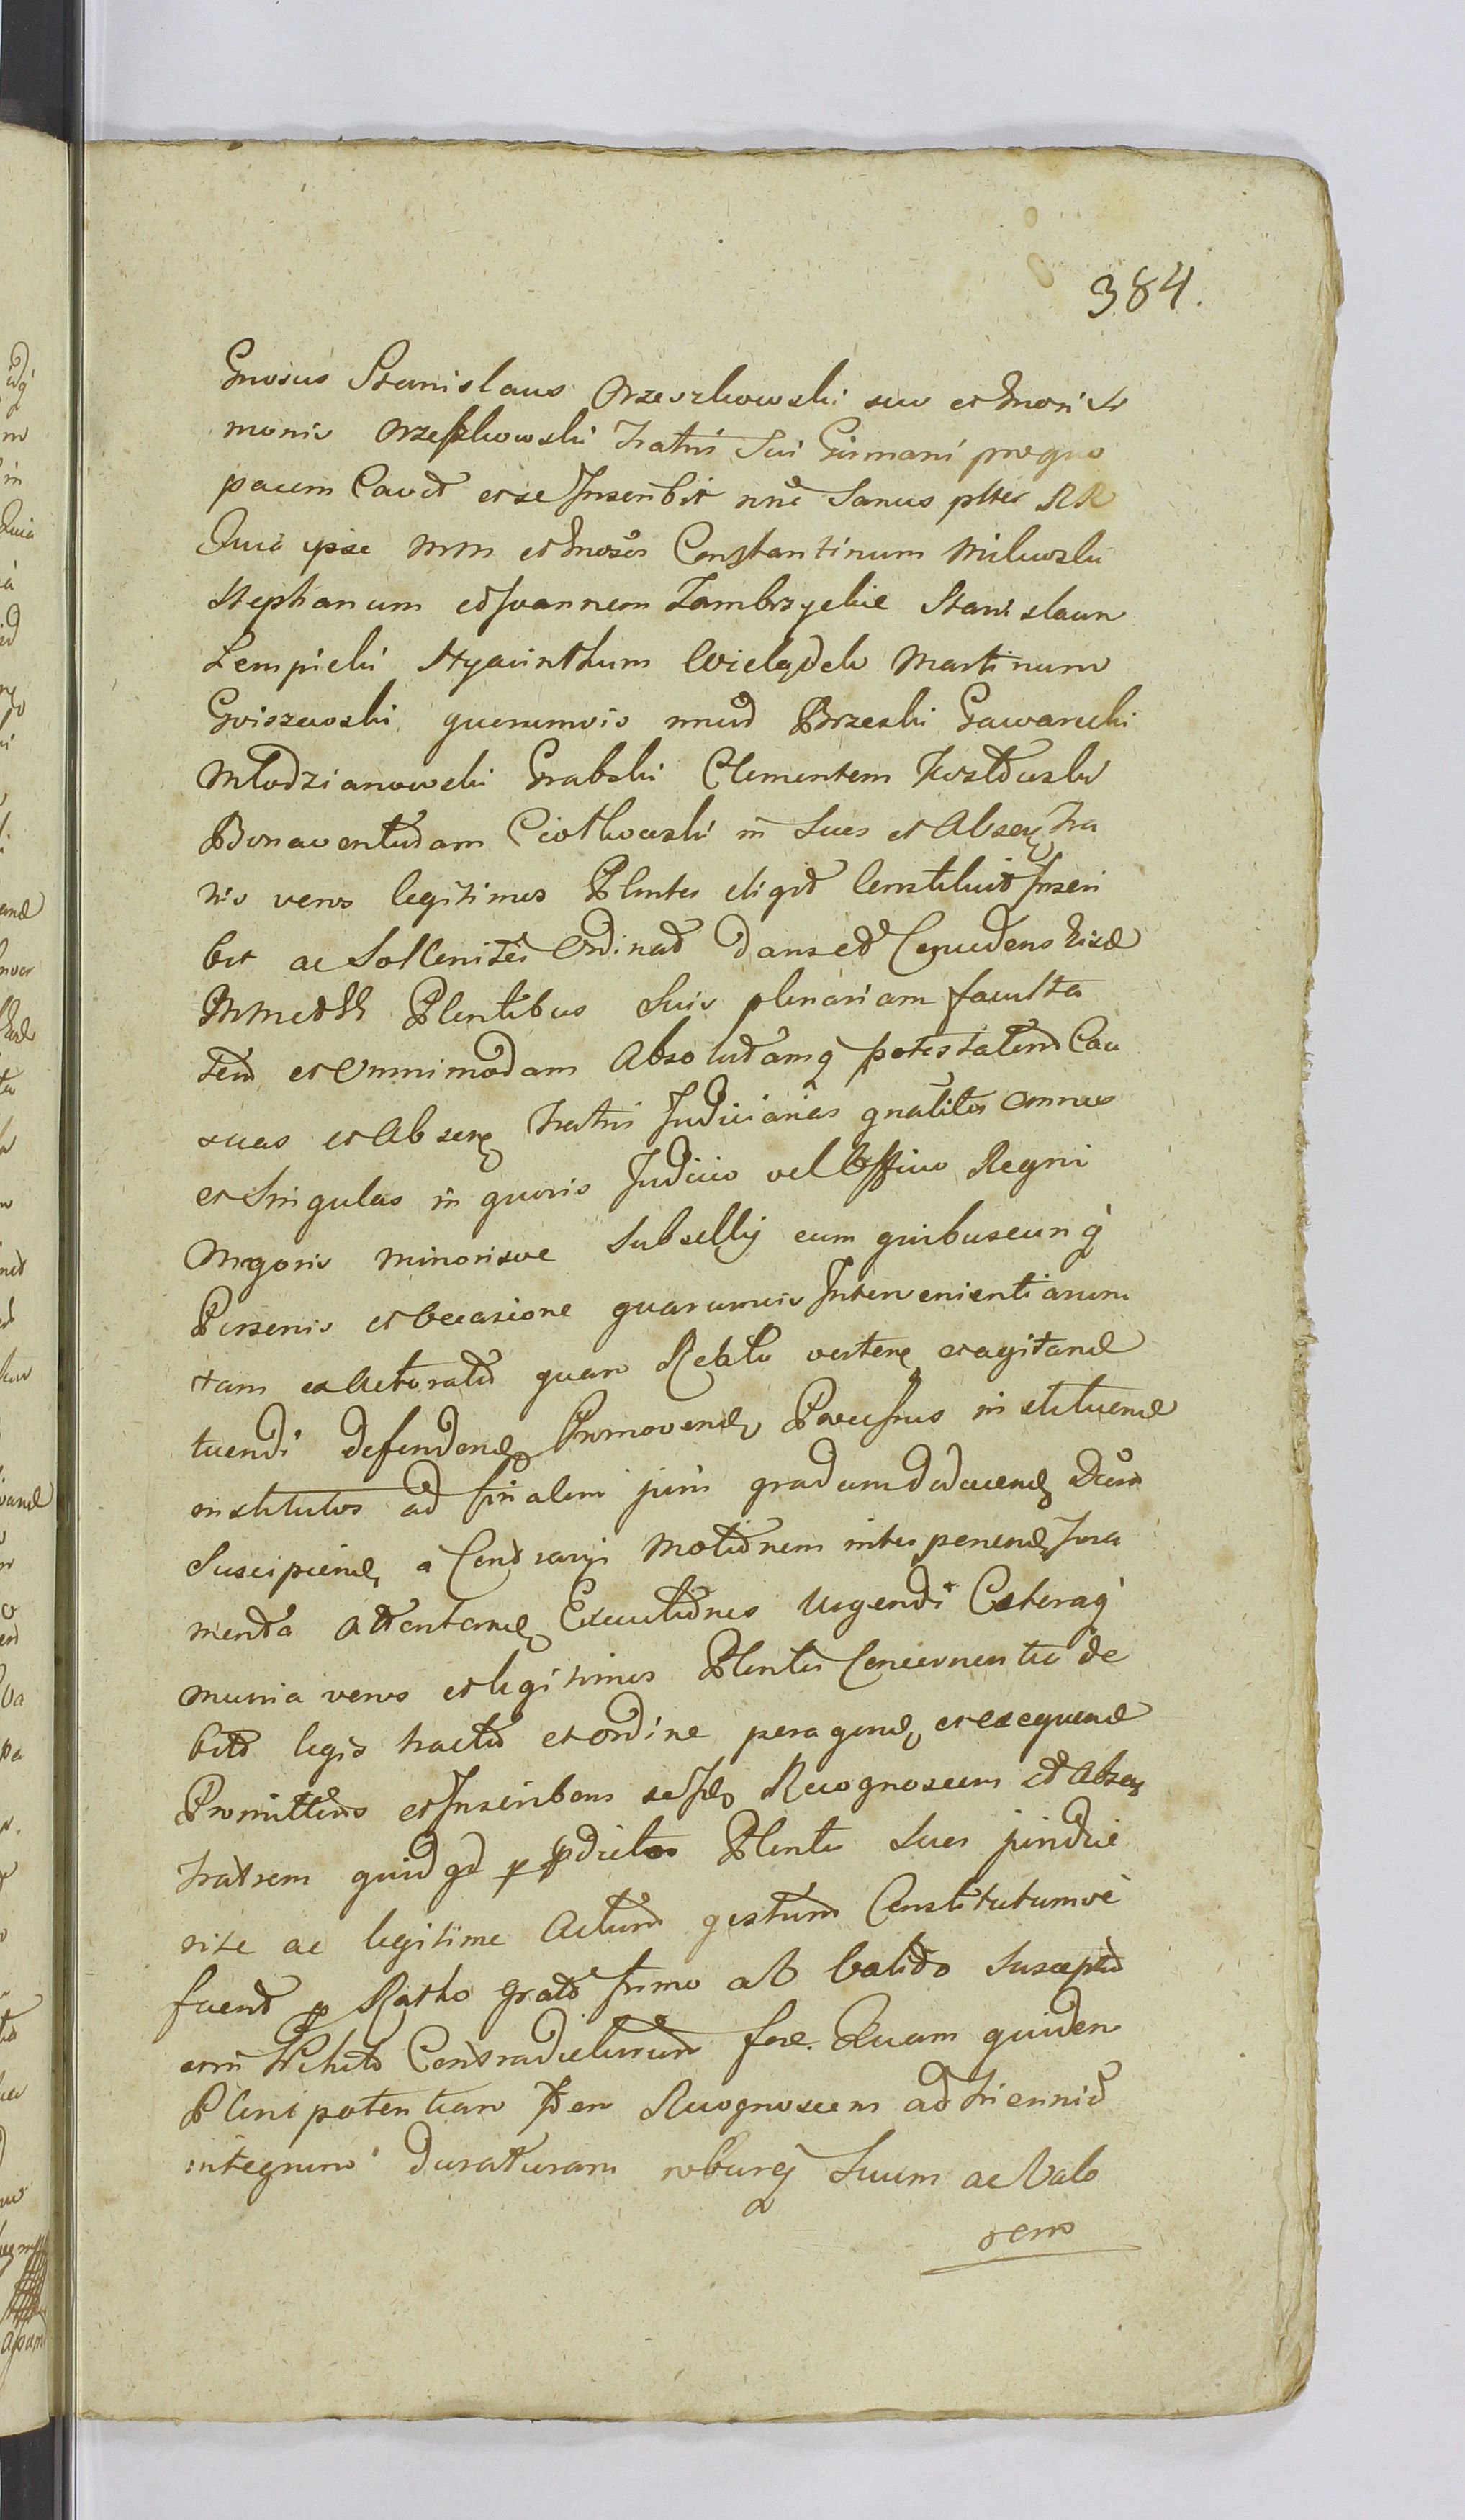 384.
Gnosus Stanislaus Orzeszkowski suo et Gnosi Si
monis Orzeszkowski Fratris Sui Germani pro quo
pacem Cavet et se Inscribit nne Sanus plter RR
Quia ipse MM et Gnosos Constantinum Milewski
Stephanum et Joannem Zambrzyckie Stanislaum
Lempicki Hyacinthum Wielądek Martinum
Gviszewoski quorumvis
Brzeski Gawarecki
Młodzianowski Grabski Clementem
Bonaventuram Ciotkowski in Suos et Absen Fra
tris veros legitimos Plentes eligit Constituit Inscri
bit ac Solleniter Ordinat dans et Concedens hisce
MM et GG Plentibus Suis plenariam faculta
tem et Omnimodam Absolutamq potestatem Cau
suas et Absen Fratris Judiciarias gnaliter omnes
et Singulas in quovis Judicio vel Officio Regni
Majoris minorisve Subsellij cum quibuscunq
Personis et Occasione quarumvis Intervenientiarum
tam ex Actoratu quam Reatu verten et agitand
tuendi defendend Promovend Processus instituend
institutos ad finalem juris gradum deducend
Suscipiend a Contrarijs Motionem interponend Jura
menta Attentand Executiones Urgendi Caeteraq
munia veros et legitimos Plentes Concernentia de
bito legis tractu et ordine peragend et exequend
Promittens et Inscribens se Ide Recognoscens et Absen
Fratrem quidqd p pdictos Plentes Suos juridice
rite ac legitime Actum gestum Constitutumve
fuerit p Ratho Grato firmo ac Valido Suscepturum
Contradicturum fore. Quam quidem
Plenipotentiam Idem Recognoscens ad triennium
integrum duraturam roburq Suum ac Valo
rem